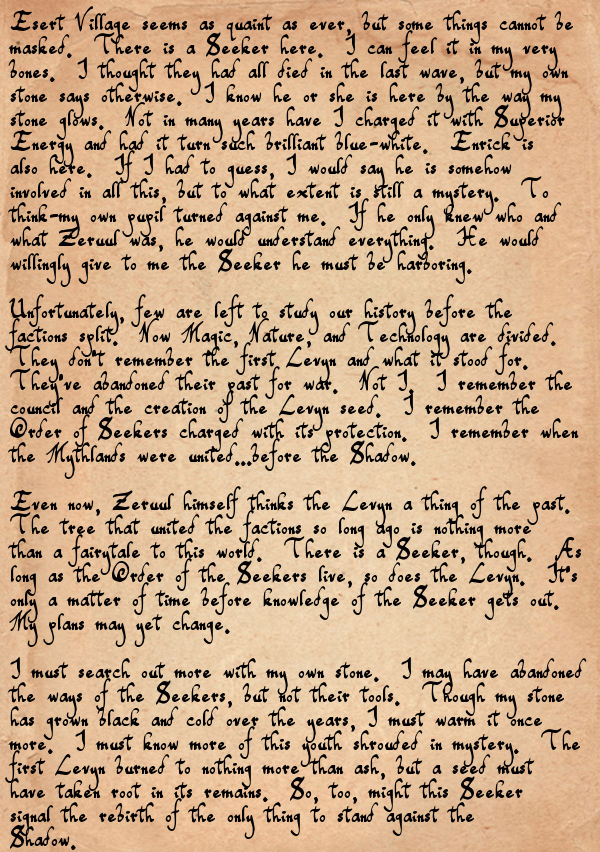 Esert Village seems as quaint as ever, but some things cannot be
masked. There is a Seeker here. I can feel it in my very
bones. I thought they had all died in the last wave, but my own
stone says otherwise. I know he or she is here by the way my
stone glows. Not in many years have I charged it with Superior
Energy and had it turn such brilliant blue-white. Enrick is
also here. If I had to guess, I would say he is somehow
involved in all this, but to what extent is still a mystery. To
think-my own pupil turned against me. If he only knew who and
what Zeruul was, he would understand everything. He would
willingly give to me the Seeker he must be harboring.
Unfortunately, few are left to study our history before the
factions split. Now Magic, Nature, and Technology are divided.
They don't remember the first Levyn and what it stood for.
They've abandoned their past for war. Not I. I remember the
council and the creation of the Levyn seed. I remember the
Order of Seekers charged with its protection. I remember when
the Mythlands were united...before the Shadow.
Even now, Zeruul himself thinks the Levyn a thing of the past.
The tree that united the factions so long ago is nothing more
than a fairytale to this world. There is a Seeker, though. As
long as the Order of the Seekers live, so does the Levyn. It's
only a matter of time before knowledge of the Seeker gets out.
My plans may yet change.
I must search out more with my own stone. I may have abandoned
the ways of the Seekers, but not their tools. Though my stone
has grown black and cold over the years, I must warm it once
more. I must know more of this youth shrouded in mystery. The
first Levyn burned to nothing more than ash, but a seed must
have taken root in its remains. So, too, might this Seeker
signal the rebirth of the only thing to stand against the
Shadow.